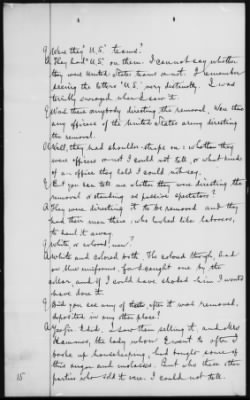 Q. Were they "U.S." teams?
A. They had "U.S." on them. I cannot say whether
they were United States teams or not. I remember
seeing the letters "U.S." very distinctly. I was
terribly enraged when I saw it.
Q. Was there anybody directing the removal, Were there
any officers of the United States army directing
the removal.
A. Well, they had shoulder-straps on; whether they
were officers or not I could not tell, or what kinds
of an office they held I could not say.
Q. But you can tell me whether they were directing the
removal or standing as passive spectators?
A. They were directing it to be removed and they
had their men there, who looked like laborers,
to haul it away.
Q. White, or colored, men?
A. White and colored both. The colored though, had
on blue uniforms, for I caught one by the
collar, and if I could have choked him I would
have done it.
Q. Did you see any of it after it was removed,
deposited in any other place?
A. Yes sir I did, I saw them selling it, and Mrs
the lady whom I went to after I
broke up housekeeping, had bought some of
this sugar and molasses. But who these other
parties who sold it were I could not tell.
15